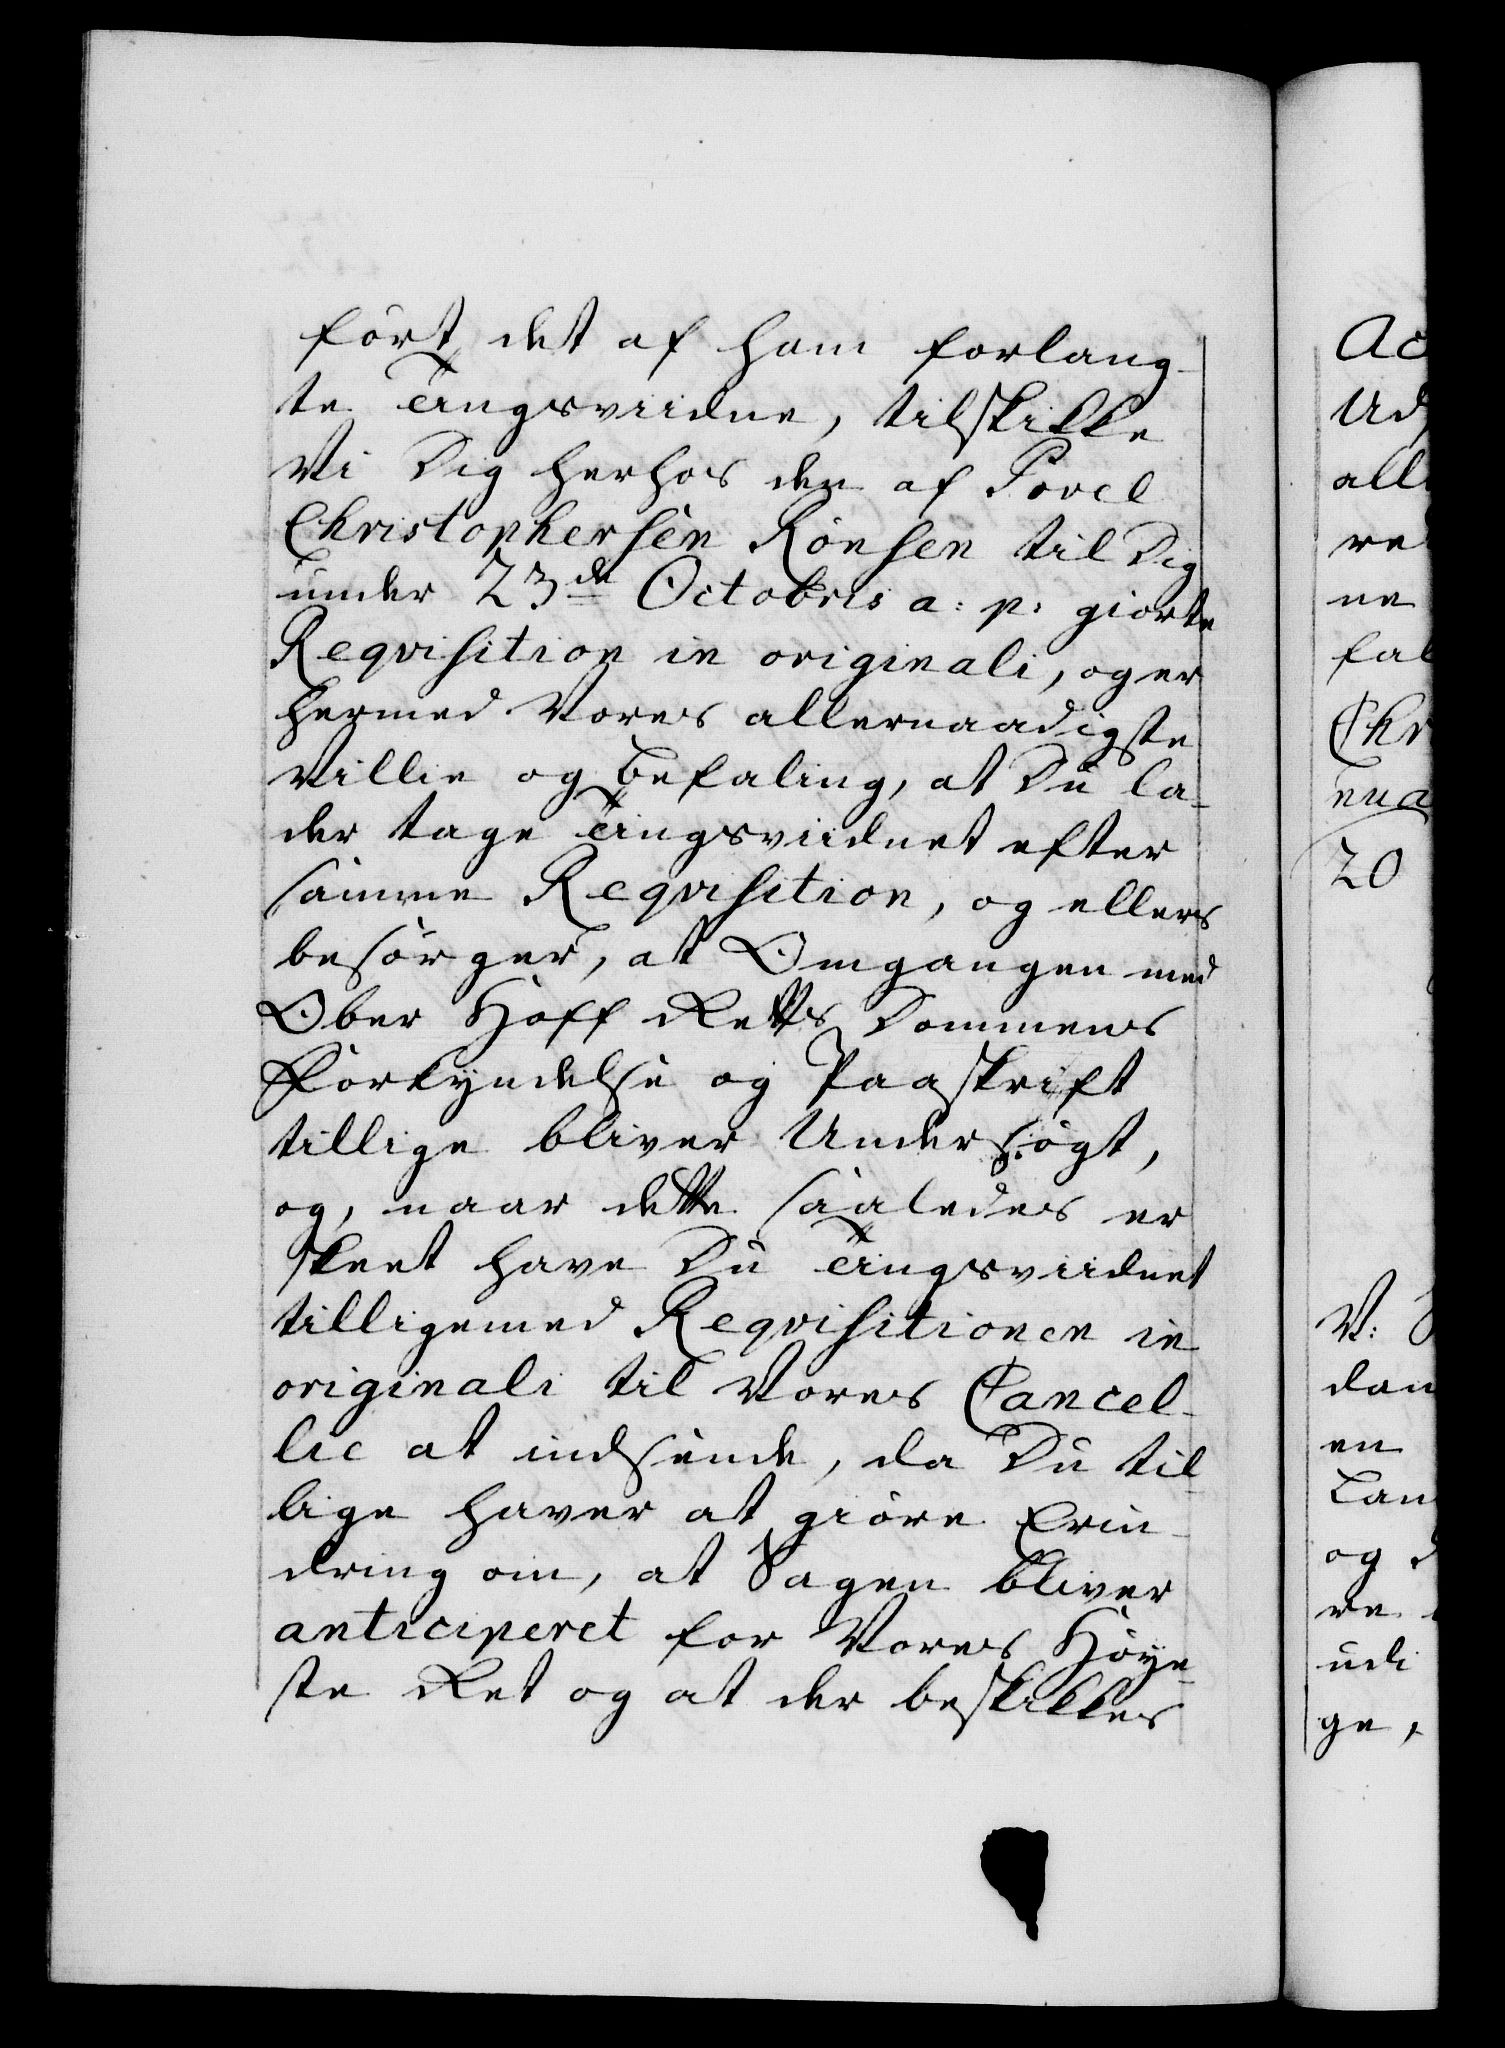 ført det af ham forlang-
te Tingsviidne, tilskikke
Vi Dig herhos den af Povel
Christophersen Rönsen til Dig
under 23de Octobris a: p: giorte
Reqvisition in originali, og er
hermed Vores allernaadigste
Villie og Befaling, at Du la-
der tage Tingsviidnet efter
samme Reqvisition, og ellers
besørger, at Omgangen med
Ober Hoff Retts Dommens
Forkyndelse og Paaskrift
tillige bliver Undersøgt,
og, naar dette saaledes er
skeet have Du Tingsviidnet
tilligemed Reqvisitionen in
originali til Vores Cancel-
lie at indsende, da Du til-
lige haver at giøre Erin-
dring om, at Sagen bliver
anticiperet for Vores Høye-
ste Ret og at der beskikkes
Ac
Ud
all
re
ne
fal
Chr
nua
20
V:
dan
en
Lan
og d
re
udi
ge,